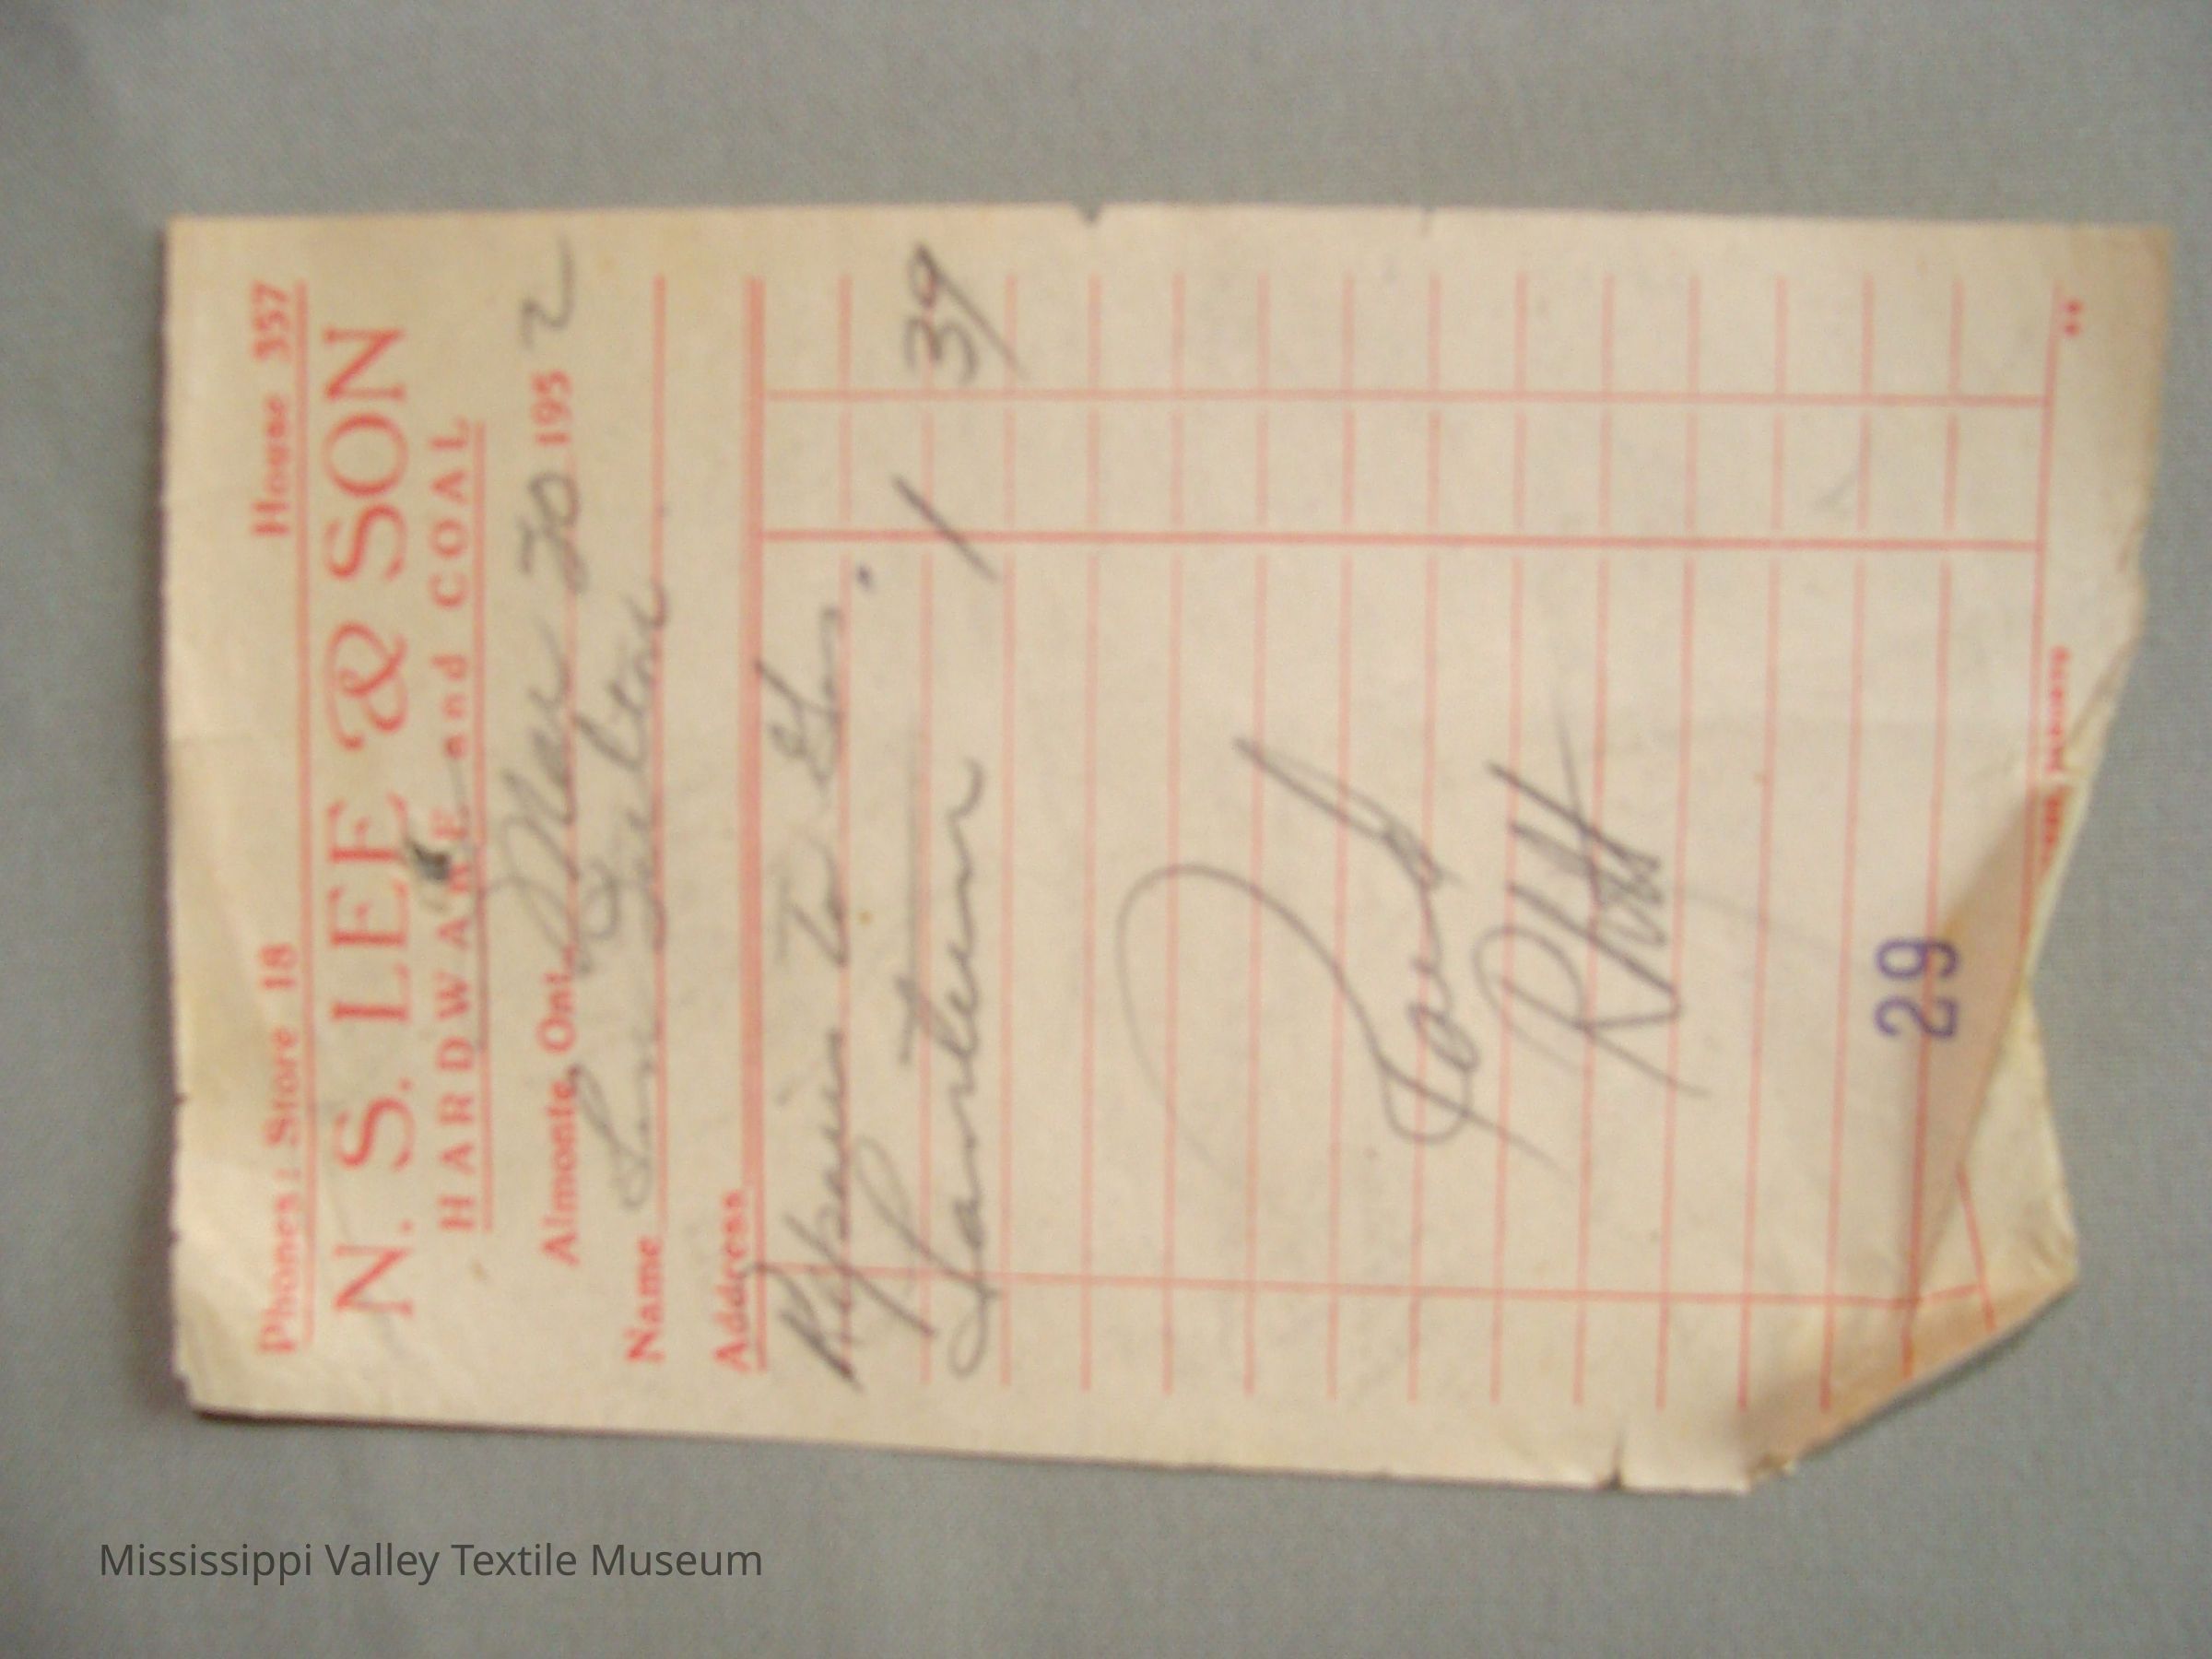 Phones: Store 18 House 357
N. S. LEE & SON
HARDWARE and COAL
Almonte, Ont. May 20 1952
Name Felton
Address
Repairs To Gas
Lantern 1 39
Paid
29
Mississippi Valley Textile Museum